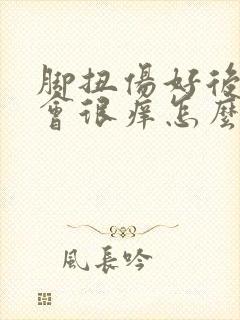 腳扭傷好後
會很痒怎麼
風長吟